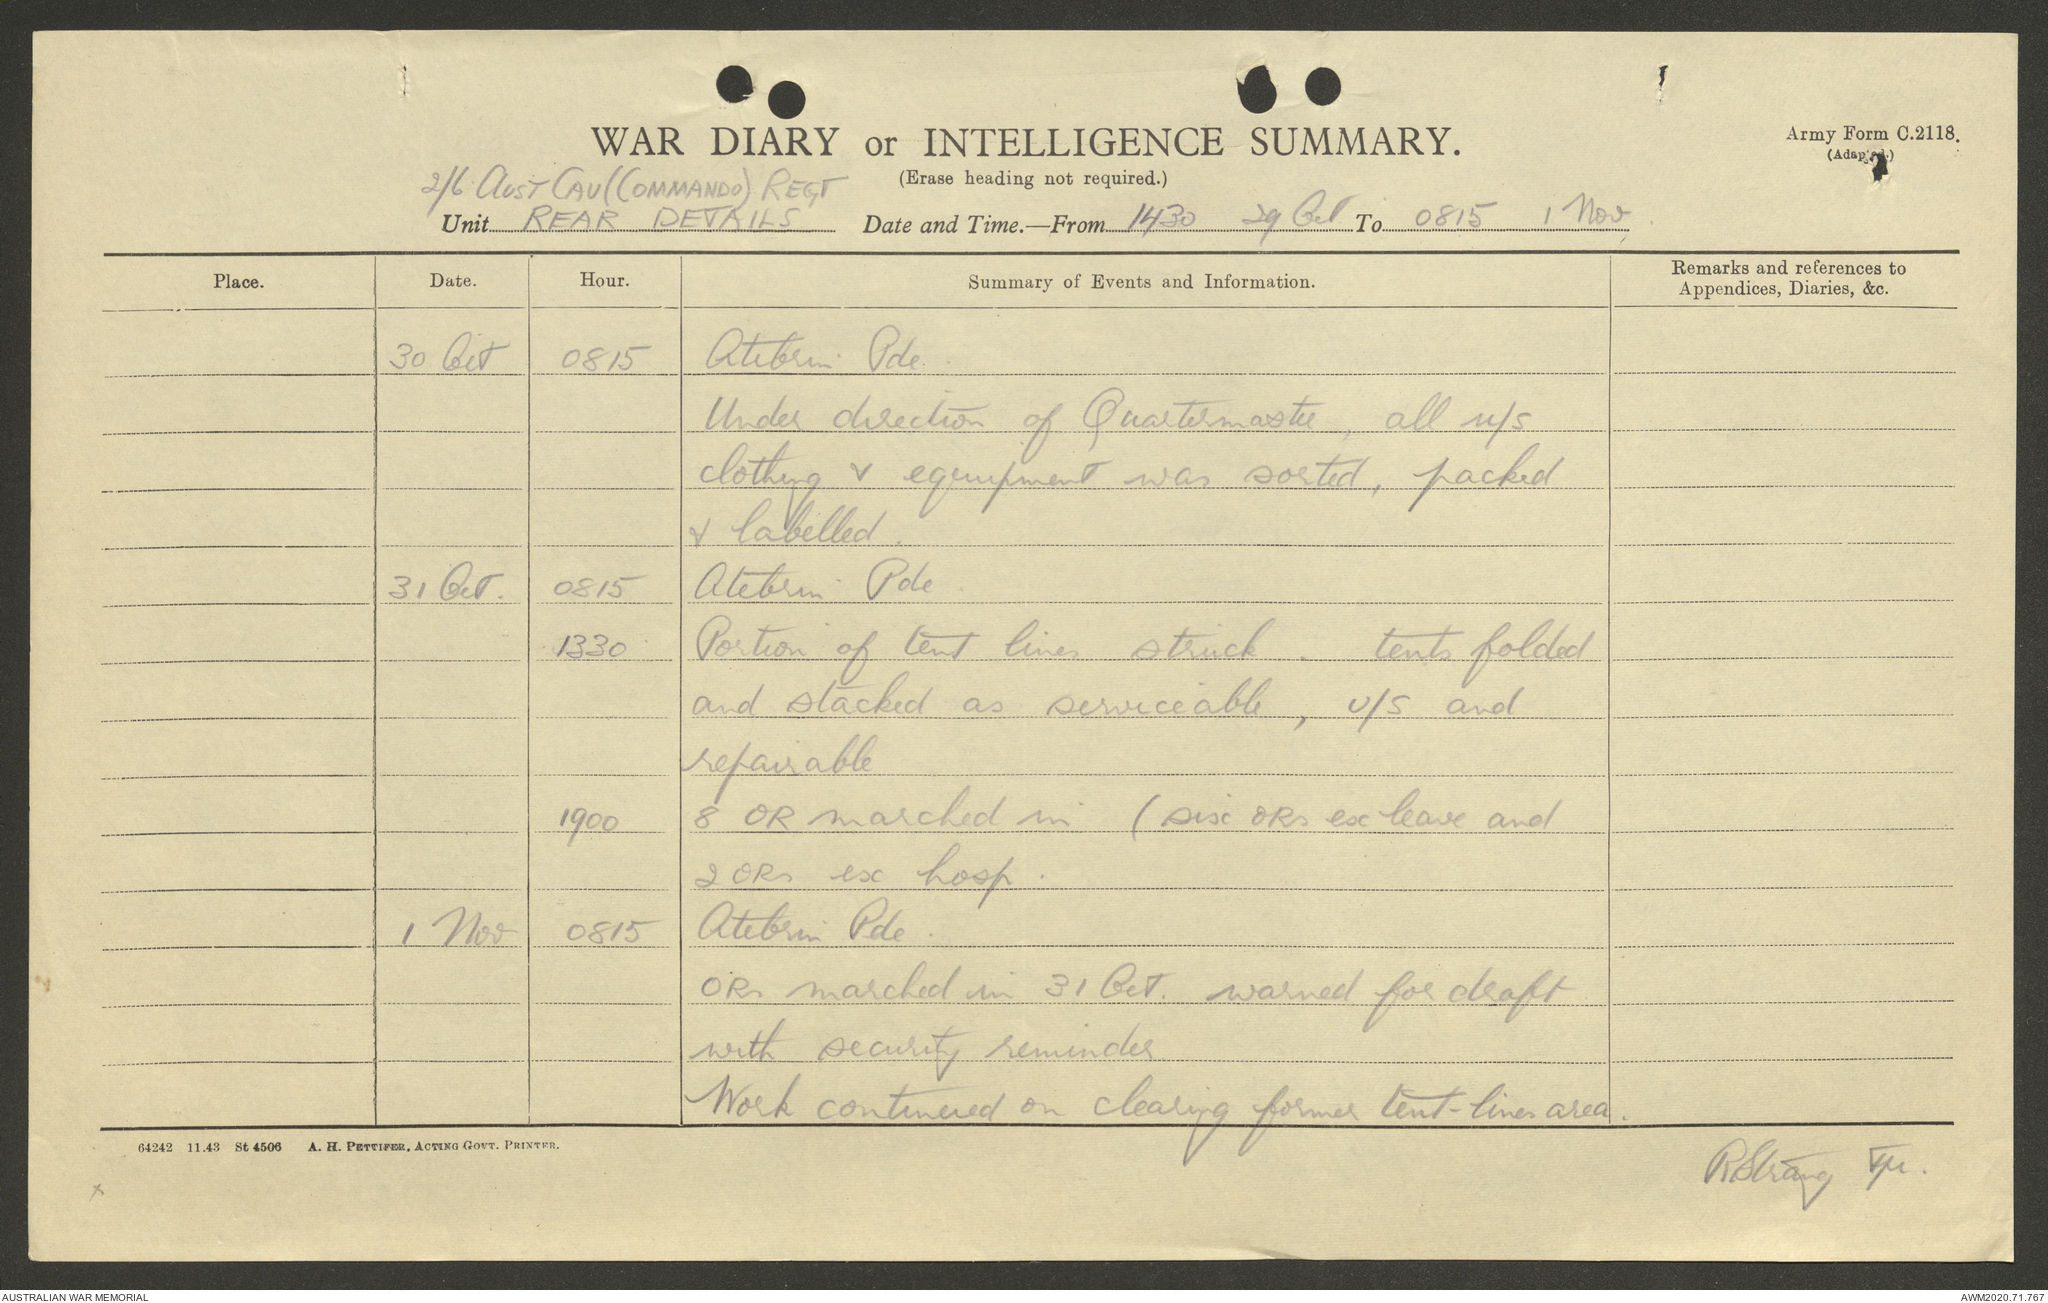 WAR DIARY or INTELLIGENCE SUMMARY.
Army Form C.2118.
(Adapted.)
(Erase heading not required.)
2/6 AUST CAV (COMMANDO) REGT
Unit REAR DETAILS Date and Time.—From 1430 29 Oct To 0815 1 Nov.
Place. Date. Hour. Summary of Events and Information. Remarks and references to
Appendices, Diaries, &c.
30 Oct 0815 Atebrin Pde.
Under direction of Quartermaster, all u/s
clothing & equipment was sorted, packed
& labelled.
31 Oct. 0815 Atebrin Pde.
1330 Portion of tent lines struck. tents folded
and stacked as serviceable, u/s and
repairable
1900 8 OR marched in (six ORs ex leave and
2 ORs ex hosp.
1 Nov 0815 Atebrin Pde.
ORs marched in 31 Oct. warned for draft
with security reminder.
Work continued on clearing former tent-lines area.
64242 11.43 St 4506 A. H. PETTIFER, ACTING GOVT. PRINTER.
RStrang Tpr.
x
AUSTRALIAN WAR MEMORIAL AWM2020.71.767